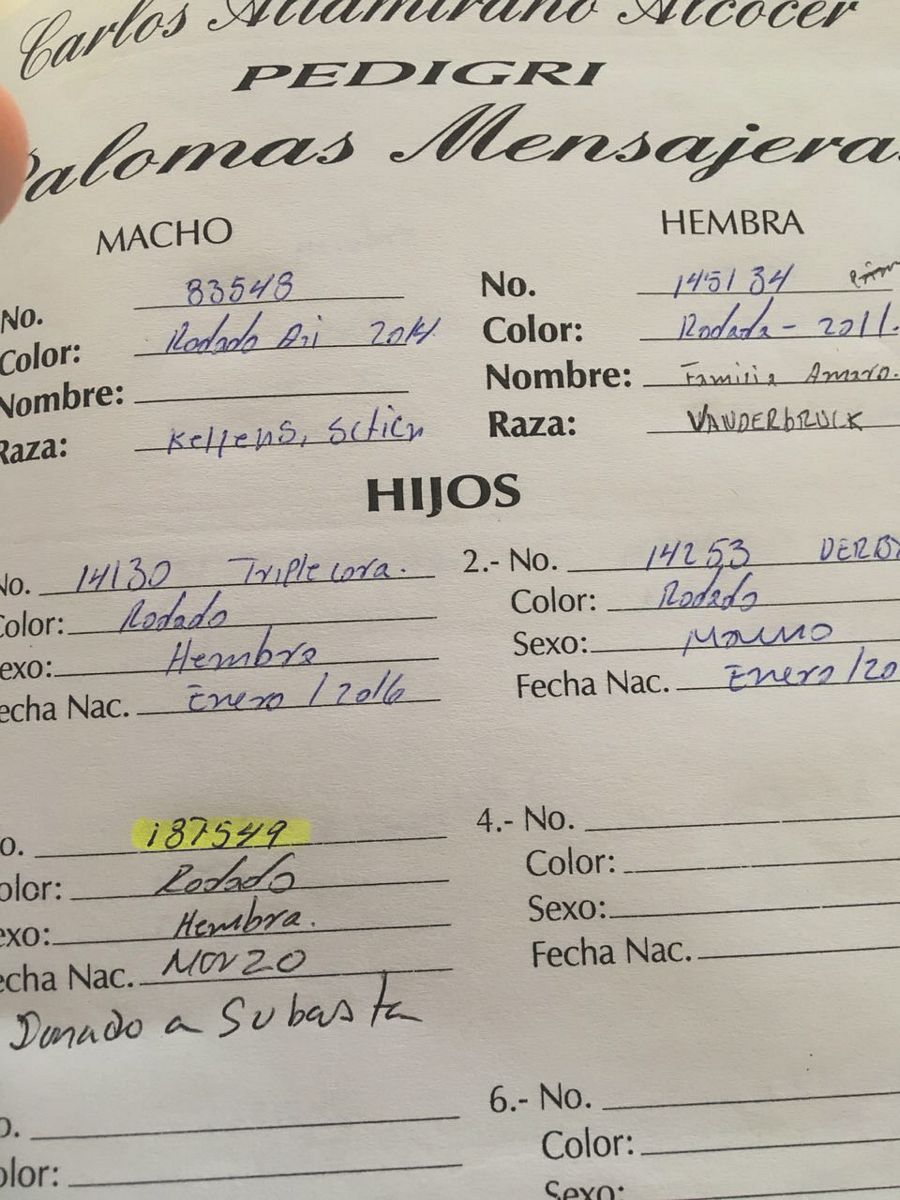 Carlos Altamirano Alcocer
PEDIGRI
Palomas Mensajeras
MACHO
No. 83548
Color: Rodado Azi 2014
Nombre:
Raza: Kellens,
HEMBRA
No. 145134
Color: Rodada - 2011.
Nombre: Familia Amaro.
Raza: VANDERBRUCK
HIJOS
No. 14130 Triple cora.
Color: Rodado
Sexo: Hembra
Fecha Nac. Enero / 2016
2.- No. 14253 DERBY
Color: Rodado
Sexo: Macho
Fecha Nac. Enero / 20
No. 187549
Color: Rodado
Sexo: Hembra.
Fecha Nac. Marzo
Donado a Subasta
4.- No.
Color:
Sexo:
Fecha Nac.
No.
Color:
6.- No.
Color:
Sexo: